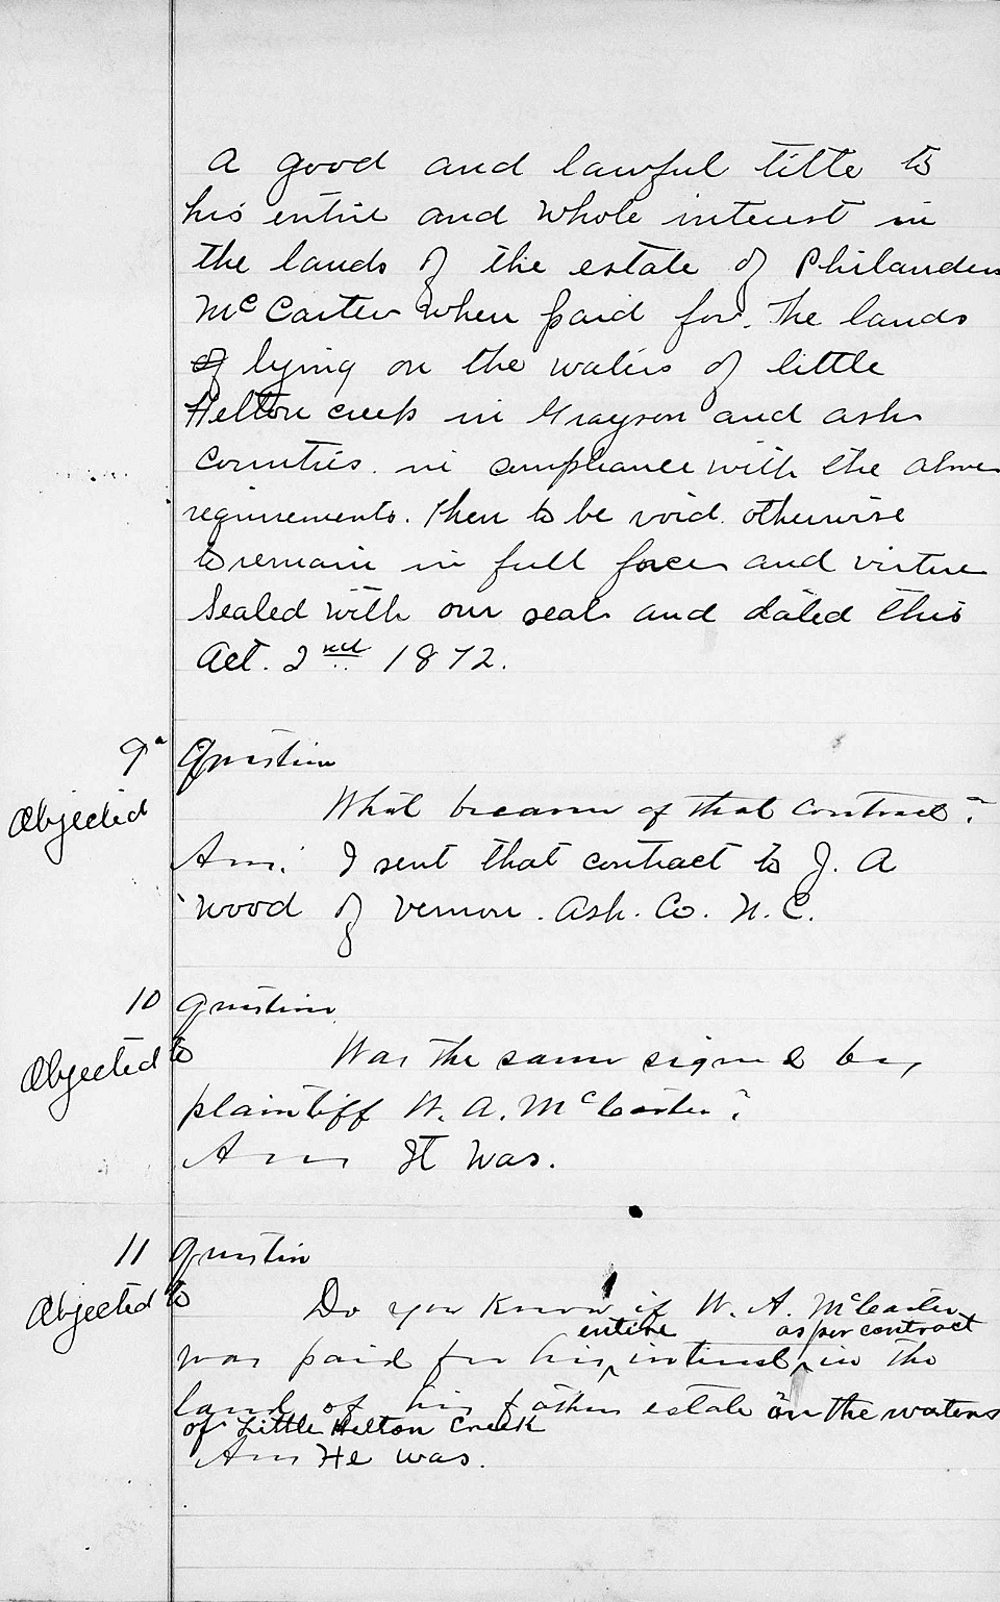 A good and lawful title to
his entire and whole interest in
the lands of the estate of Philander
McCarter when paid for. The lands
of lying on the waters of little
Helton creek in Grayson and Ash
Counties. in compliance with the above
requirements. then to be void. otherwise
to remain in full force and virtue
Sealed with our seals and dated this
Oct. 2nd 1872.
9" Question
Objected
What became of that contract?
Ans. I sent that contract to J. A
Wood of Vernon. Ash. Co. N. C.
10 Question
Objected to
Was the same signed by
plaintiff W. A. McCarter?
Ans It was.
11 Question
Objected to
Do you know if W. A. McCarter
entire as per contract
was paid for his interest in the
land of his father estate on the waters
of Little Helton Creek
Ans He was.